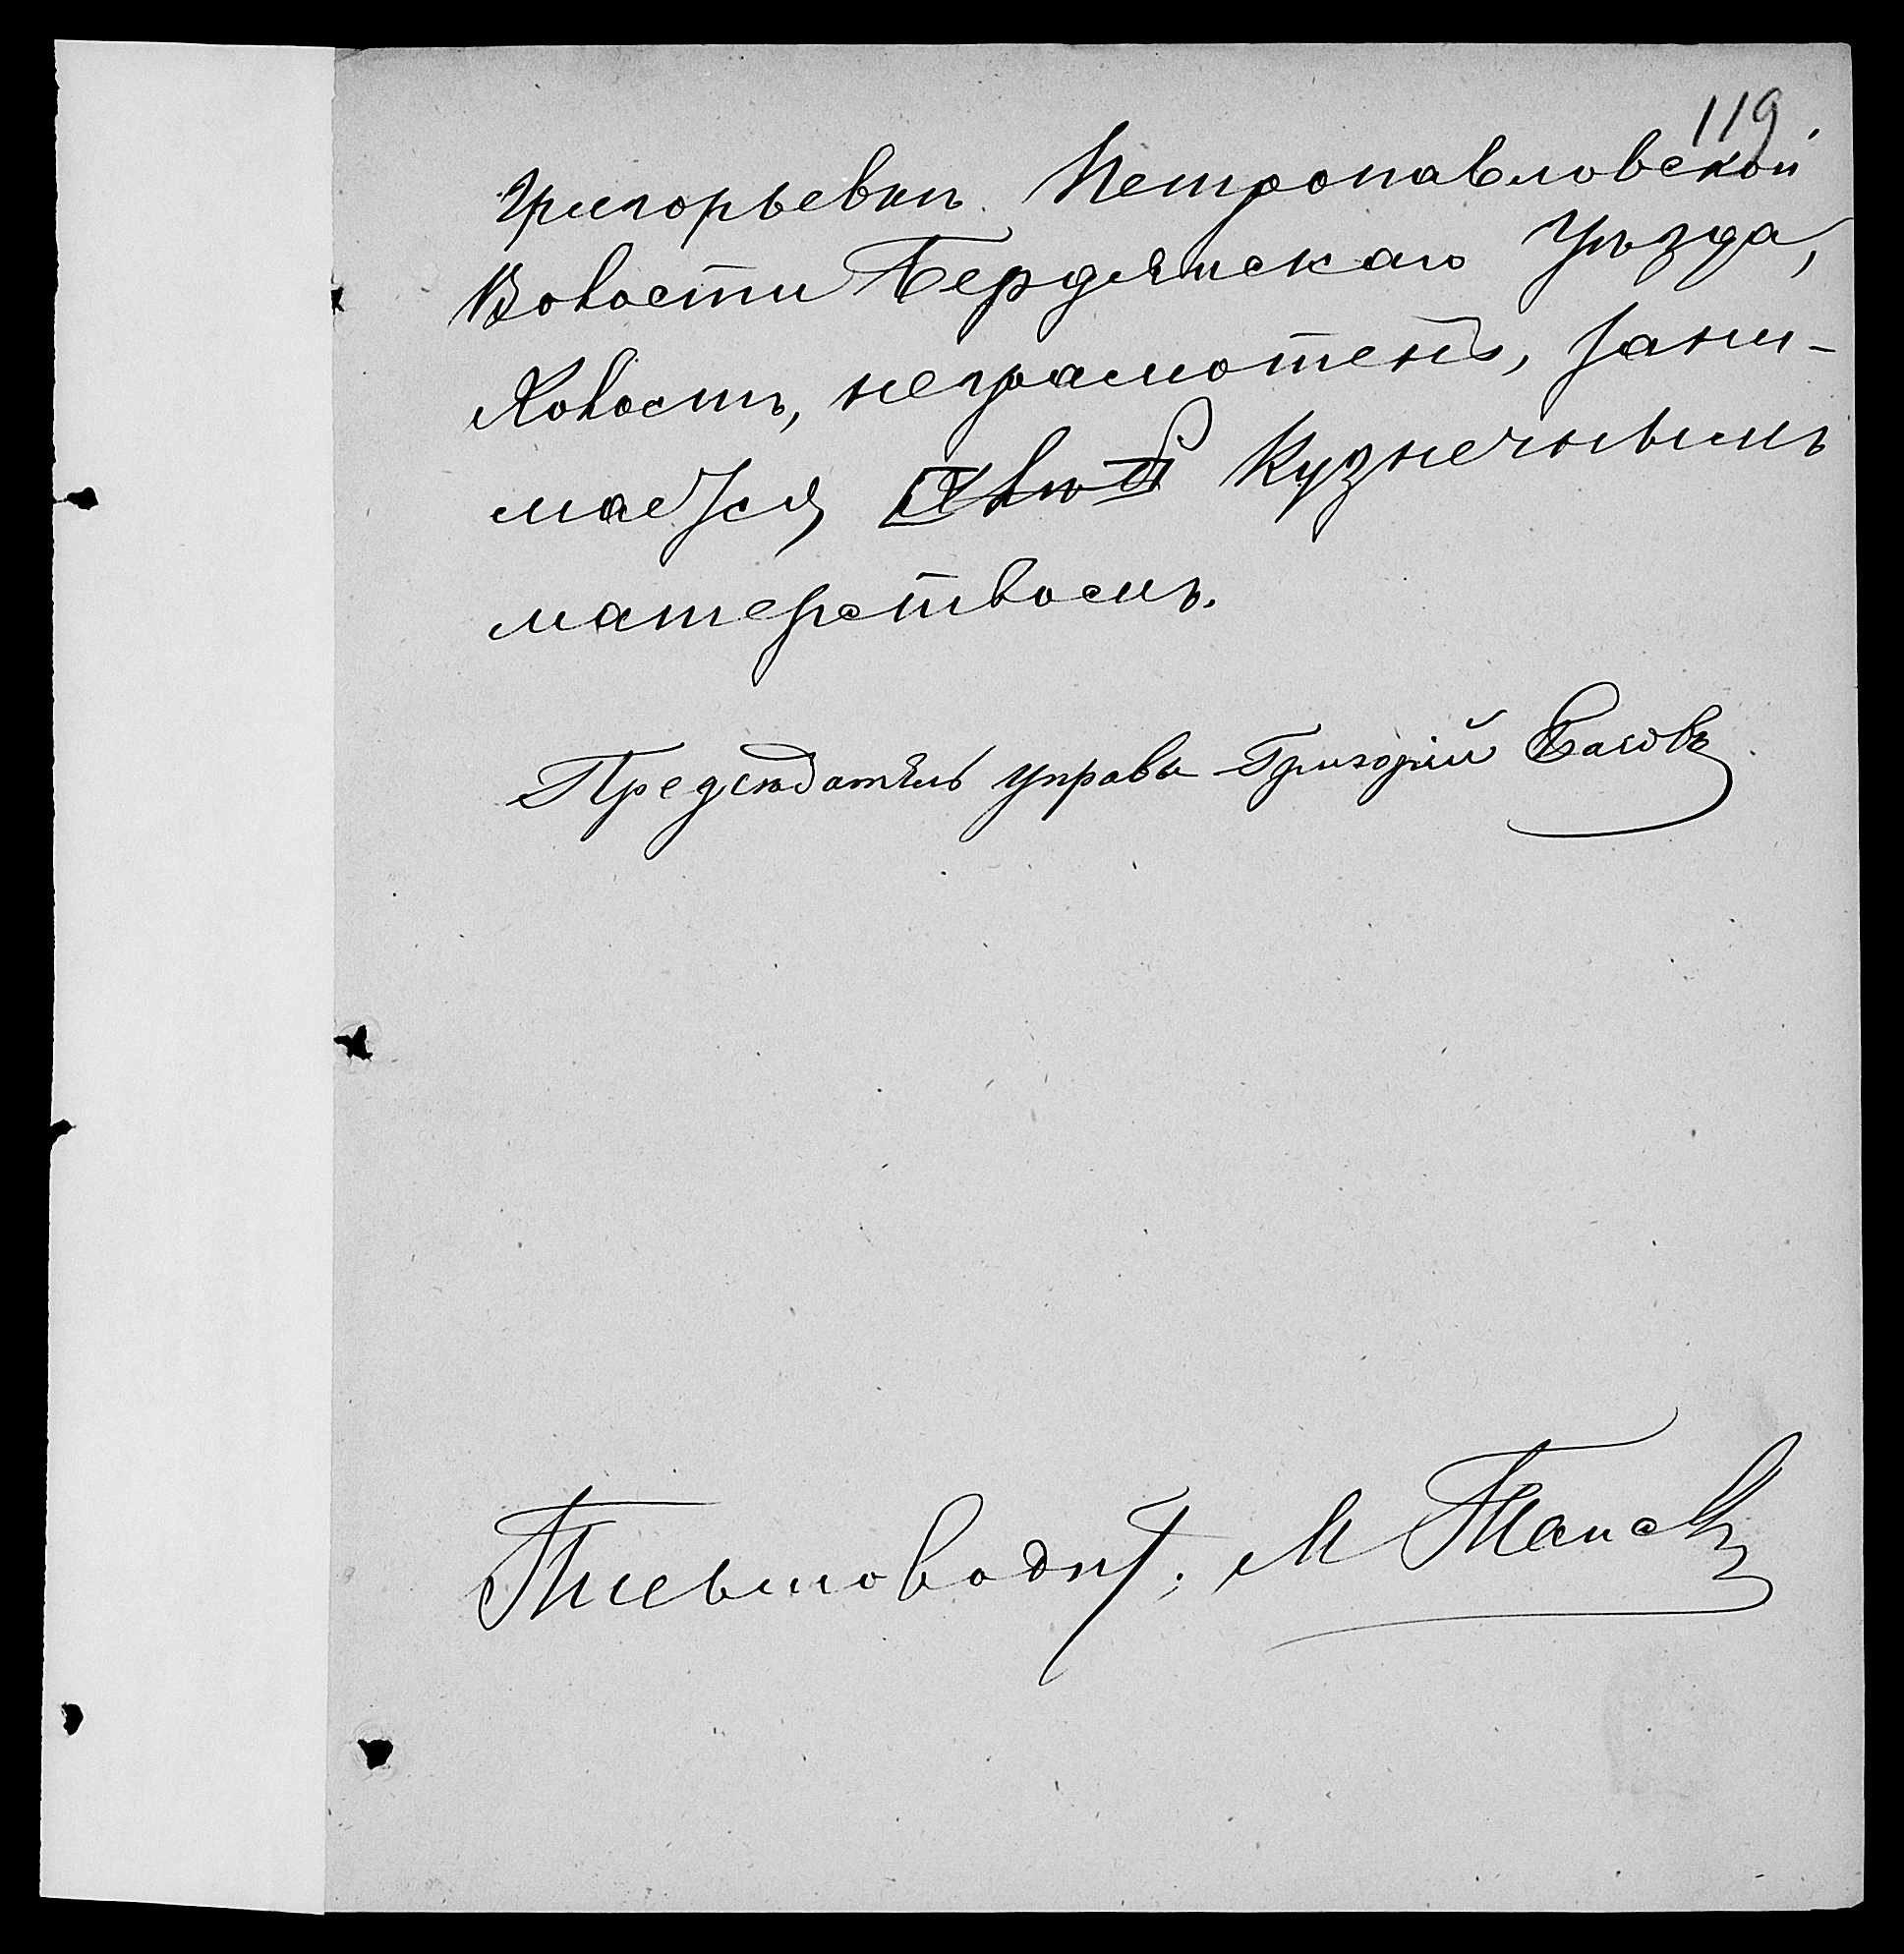 119
Григорьевкѣ Петропавловской
Волости Бердянскаго Уѣзда,
Холостъ, неграмотенъ, зани-
мается Кузнечнымъ
матерствомъ.
Предсѣдатель управы Григорій
Письмовод М